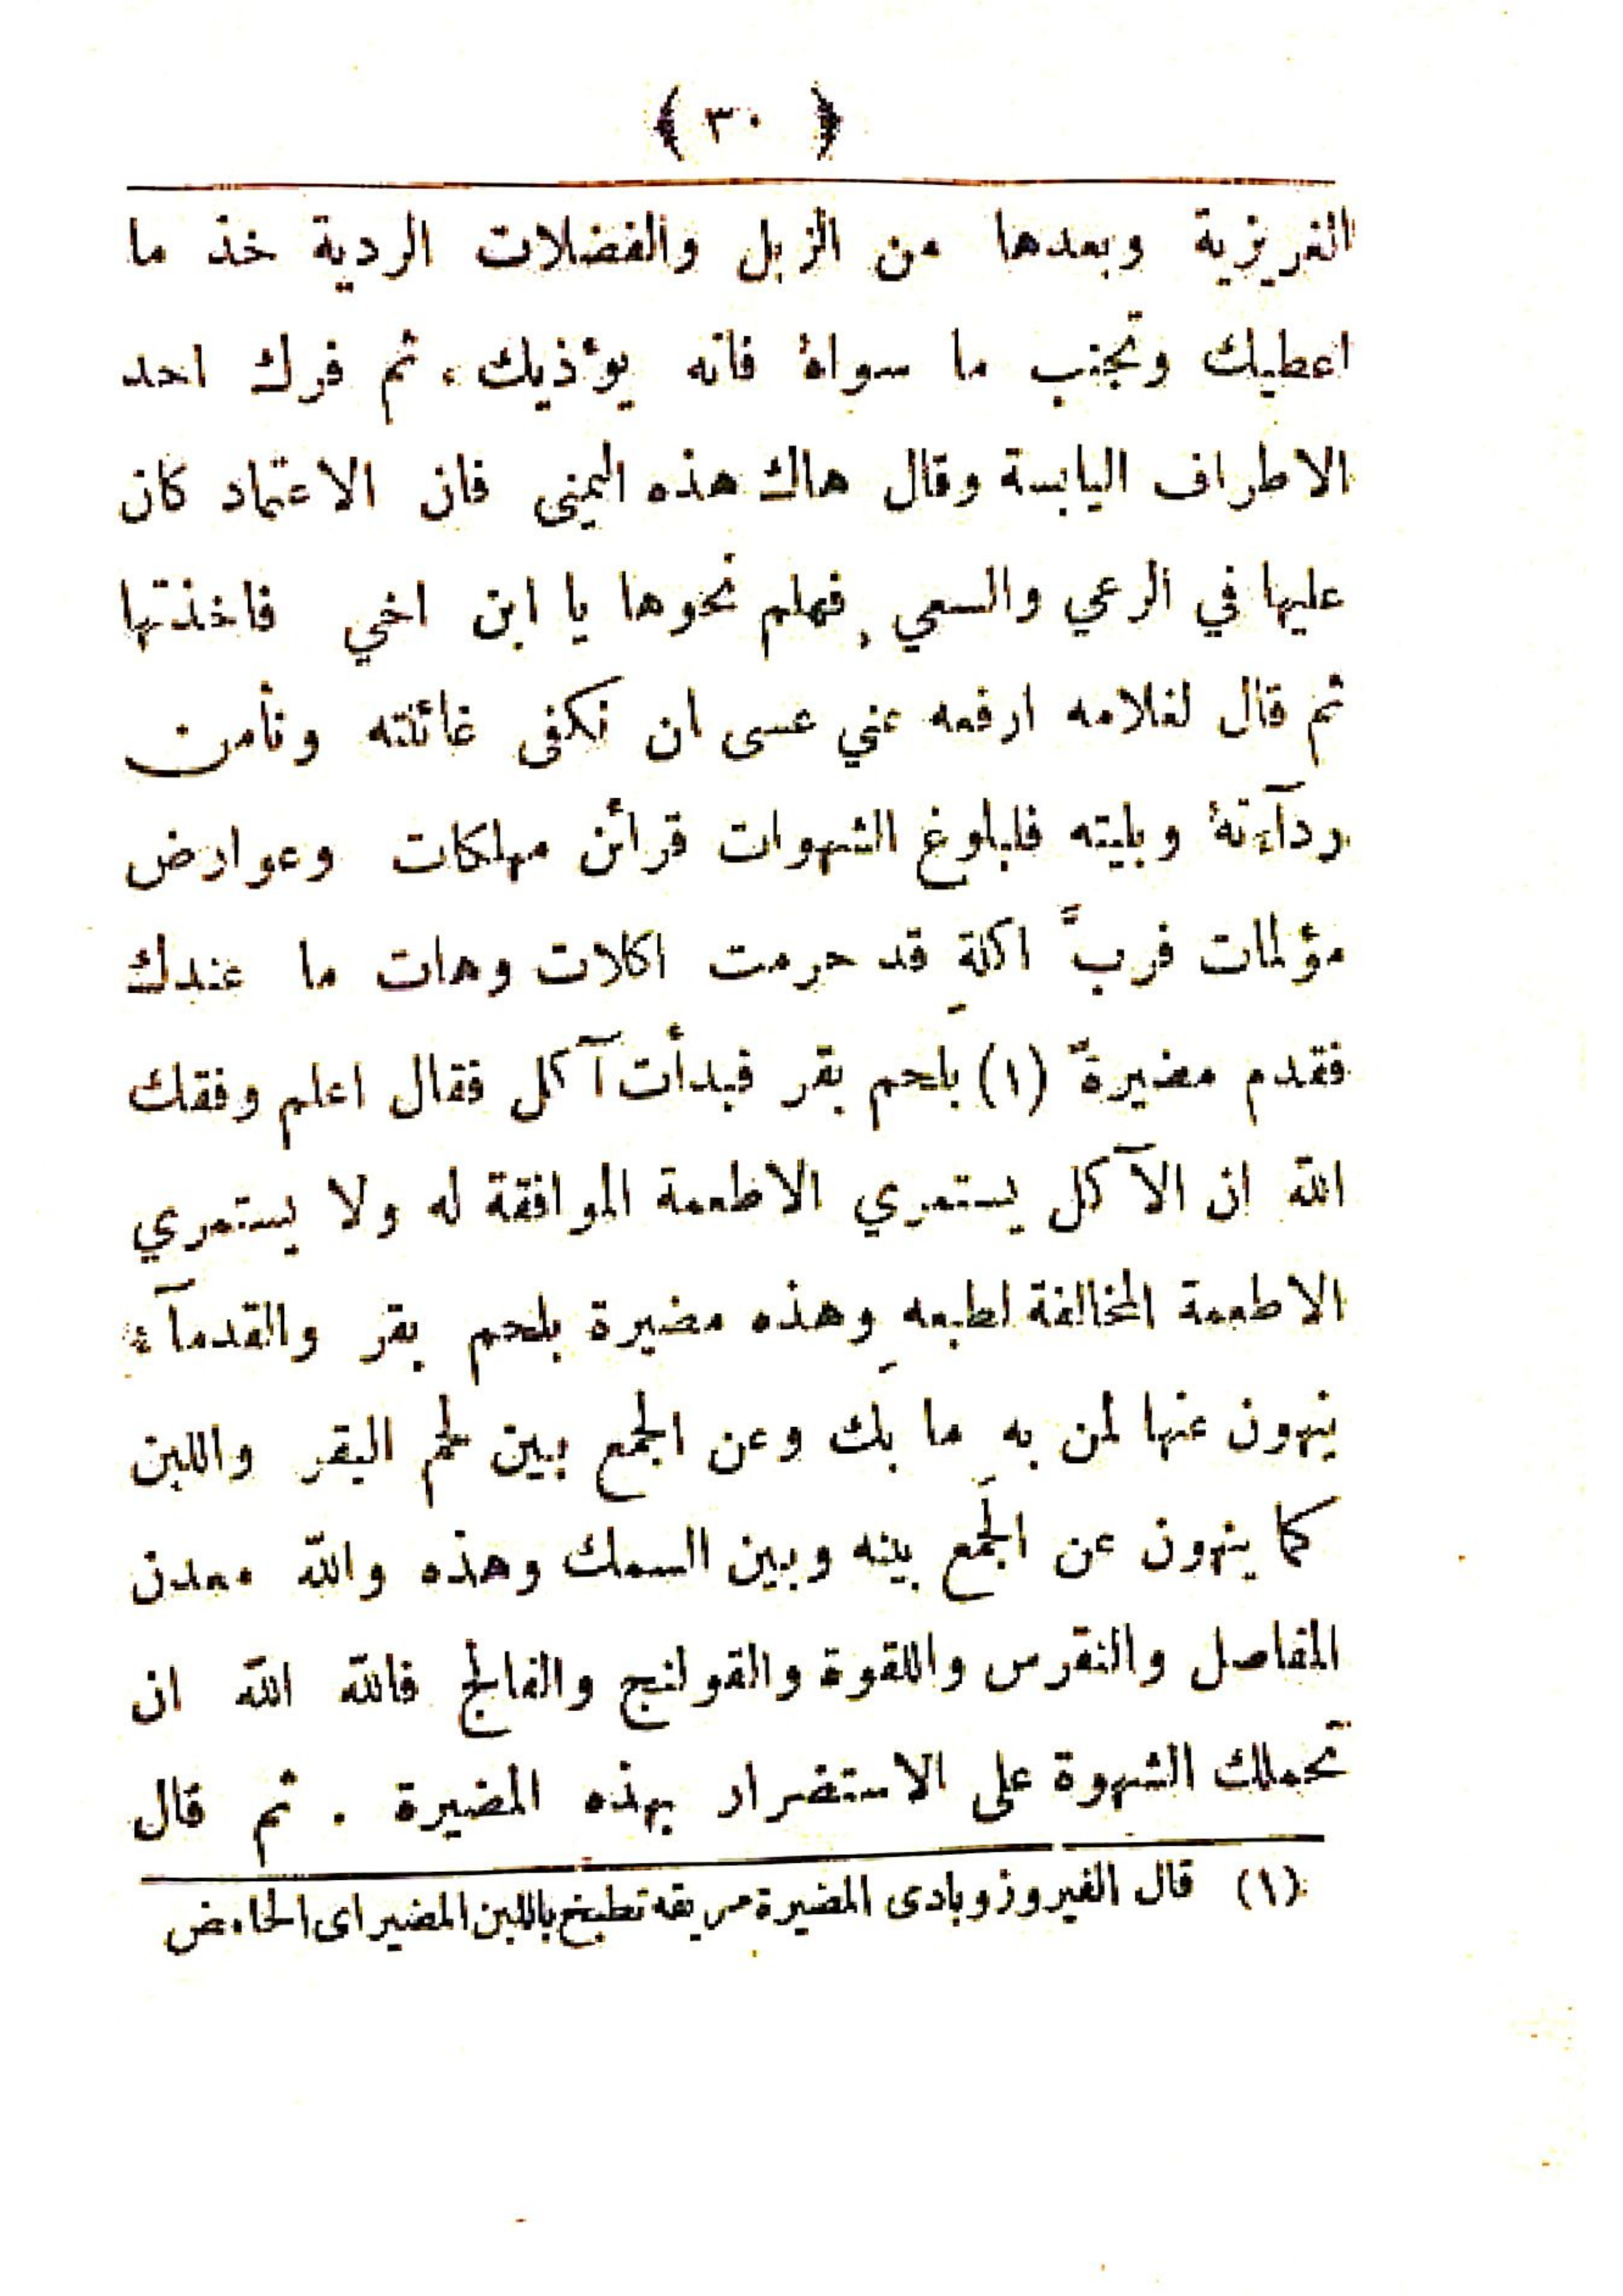 ﴿ ٣٠ ﴾
الغريزية وبعدها من الزبل والفضلات الردية خذ ما
اعطيك وتجنب ما سواهُ فانه يؤذيك، ثم فرك احد
الاطراف اليابسة وقال هاك هذه اليمنى فان الاعتماد كان
عليها في الرعي والسعي فهلم نحوها يا ابن اخي فاخذتها
ثم قال لغلامه ارفعه عني عسى ان نكفى غائلته ونأمن
ردآءتهُ وبليته فلبلوغ الشهوات قرائن مهلكات وعوارض
مؤلمات فربَّ اكلةٍ قد حرمت اكلات وهات ما عندك
فقدم مضيرةً (١) بلحم بقر فبدأت آكل فقال اعلم وفقك
الله ان الآكل يستمري الاطعمة الموافقة له ولا يستمري
الاطعمة المخالفة لطبعه وهذه مضيرة بلحم بقر والقدمآء
ينهون عنها لمن به ما بك وعن الجمع بين لحم البقر واللبن
كما ينهون عن الجمع بينه وبين السمك وهذه والله معدن
المفاصل والنقرس واللقوة والقولنج والفالج فالله الله ان
تحملك الشهوة على الاستضرار بهذه المضيرة . ثم قال
(١) قال الفيروزوبادى المضيرة مريقه تطبخ باللبن المضير اى الحامض